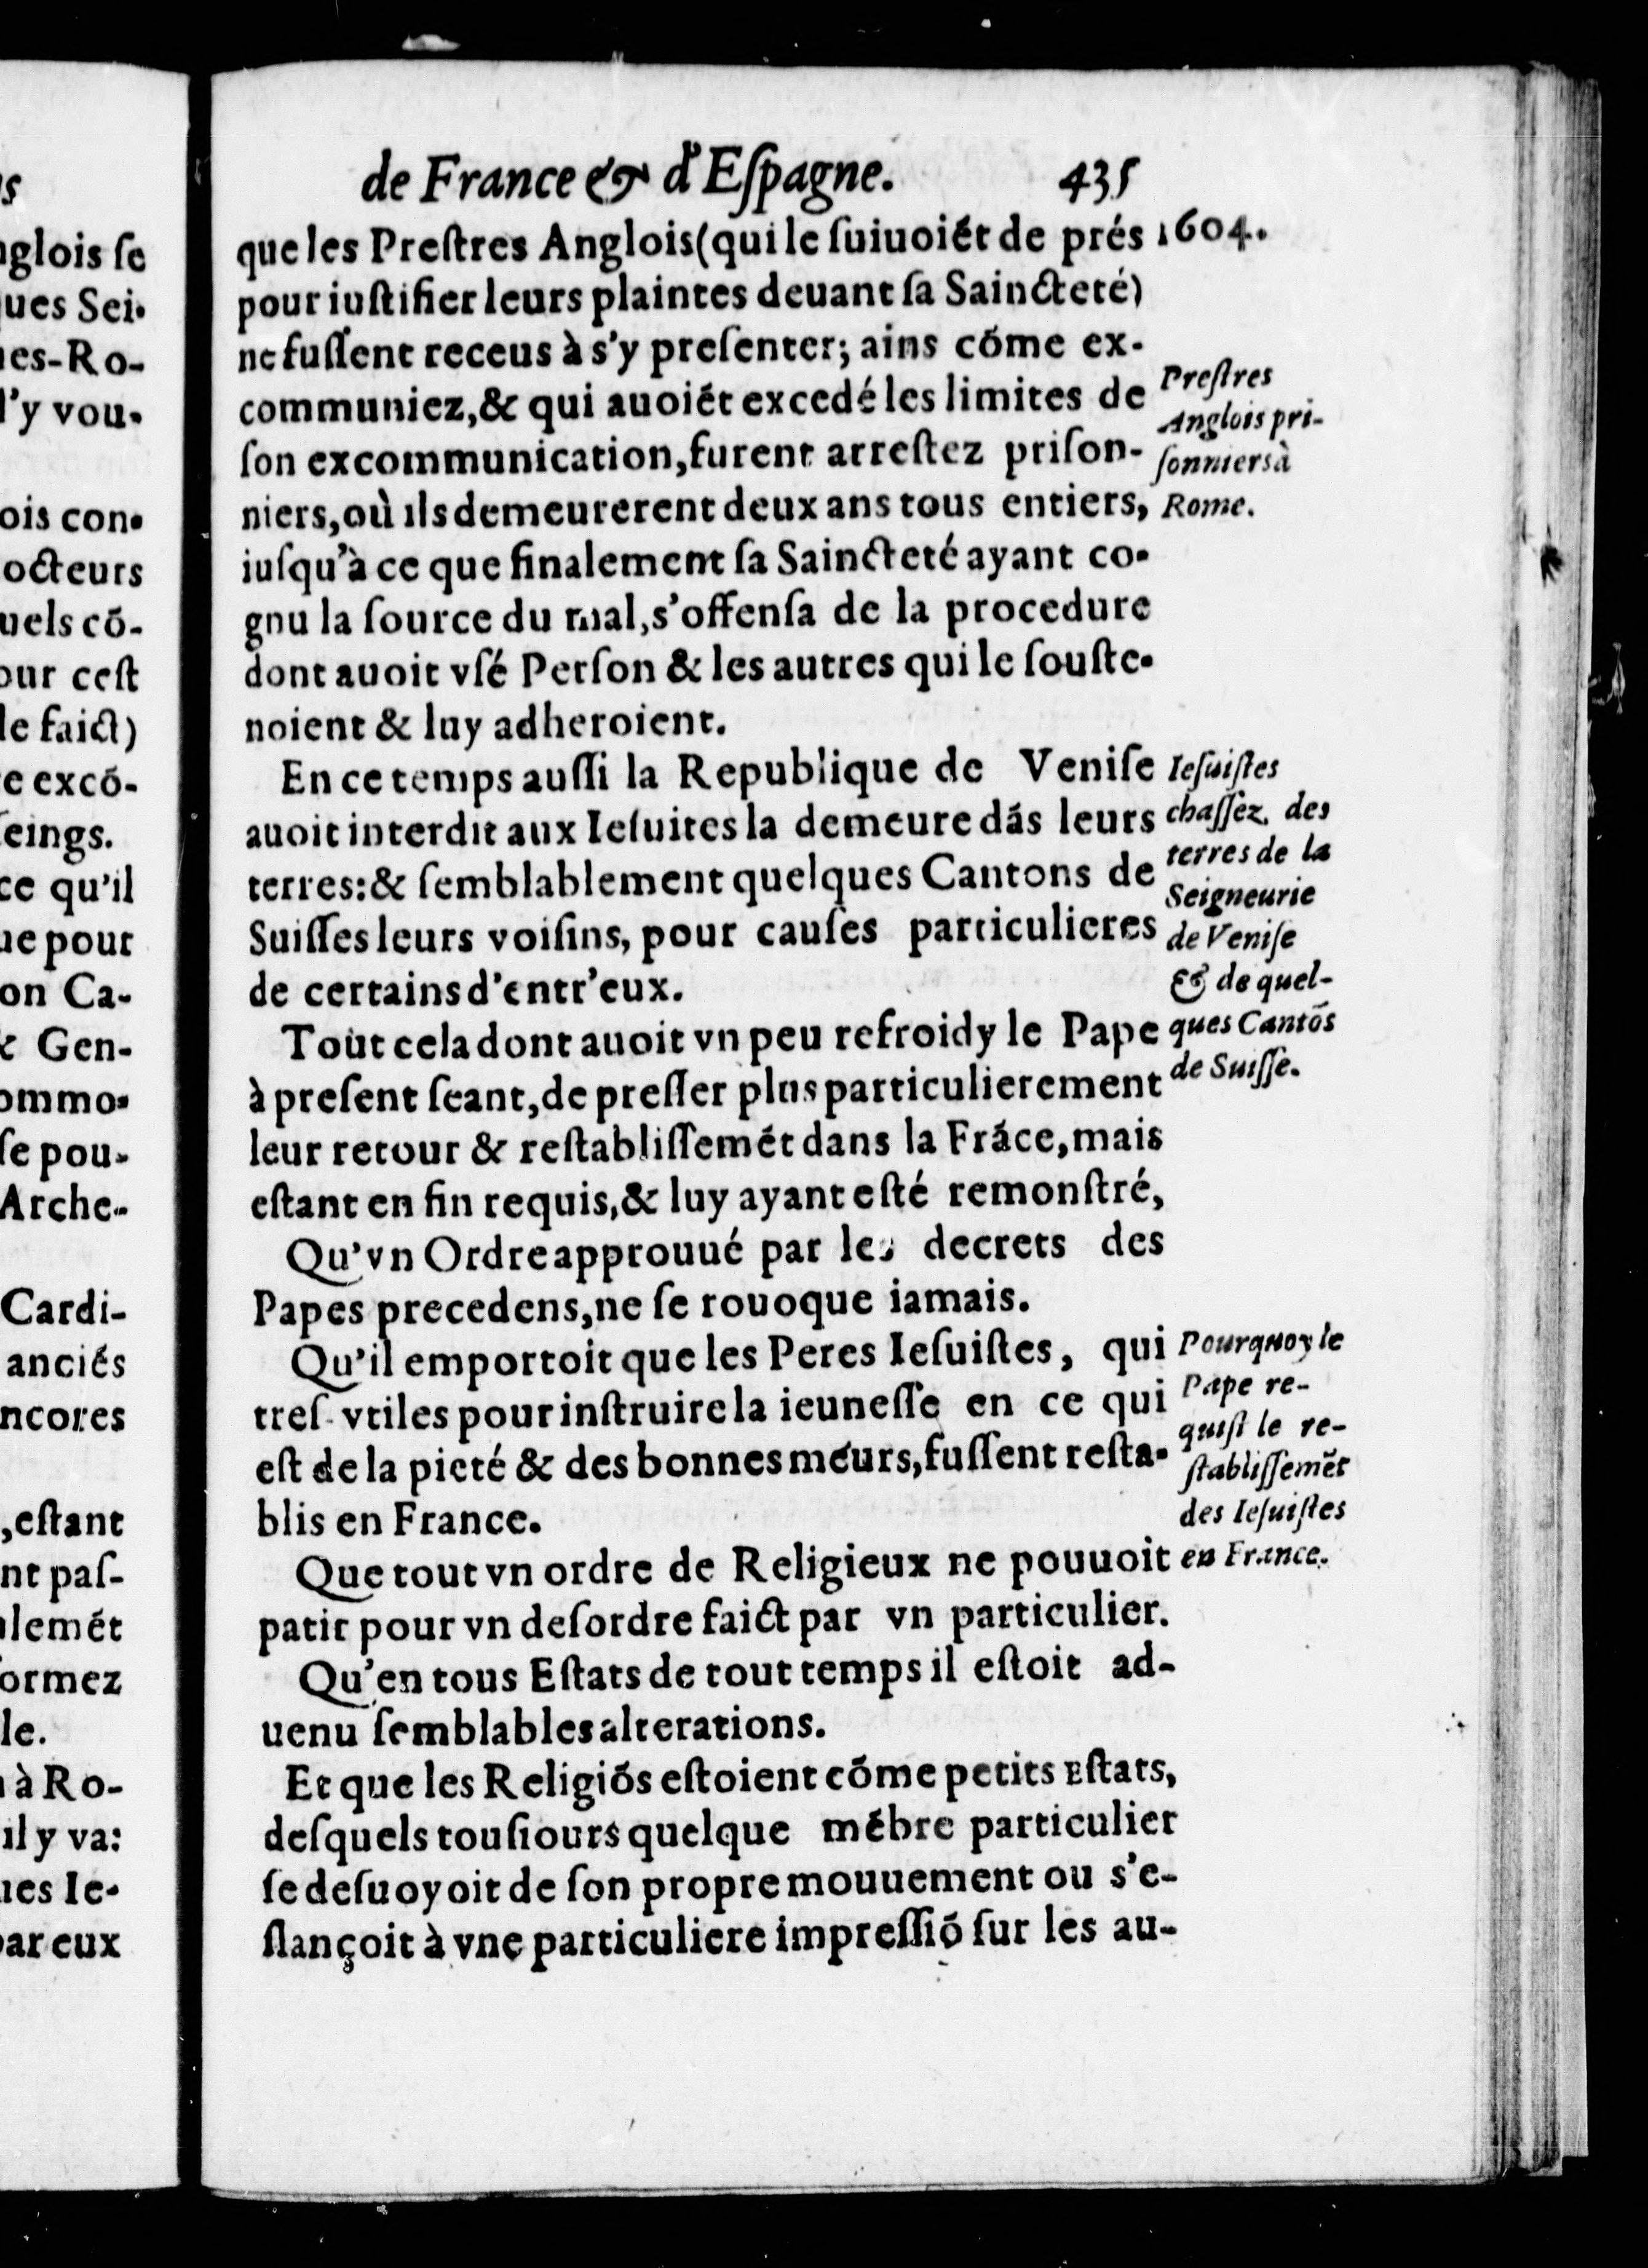 de France & d'Eſpagne. 435
que les Preſtres Anglois (qui le ſuiuoiẽt de prés
pour iuſtifier leurs plaintes deuant ſa Saincteté)
ne fuſſent receus à s'y preſenter; ains cõme ex-
communiez, & qui auoiẽt excedé les limites de
ſon excommunication, furent arreſtez priſon-
niers, où ils demeurerent deux ans tous entiers,
iuſqu'à ce que finalement ſa Saincteté ayant co-
gnu la ſource du mal, s'offenſa de la procedure
dont auoit vſé Perſon & les autres qui le ſouſte-
noient & luy adheroient.
En ce temps auſſi la Republique de Veniſe
auoit interdit aux Ieſuites la demeure dãs leurs
terres: & ſemblablement quelques Cantons de
Suiſſes leurs voiſins, pour cauſes particulieres
de certains d'entr'eux.
Tout cela dont auoit vn peu refroidy le Pape
à preſent ſeant, de preſſer plus particulierement
leur retour & reſtabliſſemẽt dans la Frãce, mais
eſtant en fin requis, & luy ayant eſté remonſtré,
Qu'vn Ordre approuué par les decrets des
Papes precedens, ne ſe rouoque iamais.
Qu'il emportoit que les Peres Ieſuiſtes, qui
treſ-vtiles pour inſtruire la ieuneſſe en ce qui
eſt de la pieté & des bonnes meurs, fuſſent reſta-
blis en France.
Que tout vn ordre de Religieux ne pouuoit
patir pour vn deſordre faict par vn particulier.
Qu'en tous Eſtats de tout temps il eſtoit ad-
uenu ſemblables alterations.
Et que les Religiõs eſtoient cõme petits Eſtats,
deſquels touſiours quelque mẽbre particulier
ſe deſuoyoit de ſon propre mouuement ou s'e-
ſlançoit à vne particuliere impreſſiõ ſur les au-
1604.
Preſtres
Anglois pri-
ſonniers à
Rome.
Ieſuiſtes
chaſſez des
terres de la
Seigneurie
de Veniſe
& de quel-
ques Cantõs
de Suiſſe.
Pourquoy le
Pape re-
quiſt le re-
ſtabliſſemẽt
des Ieſuiſtes
en France.